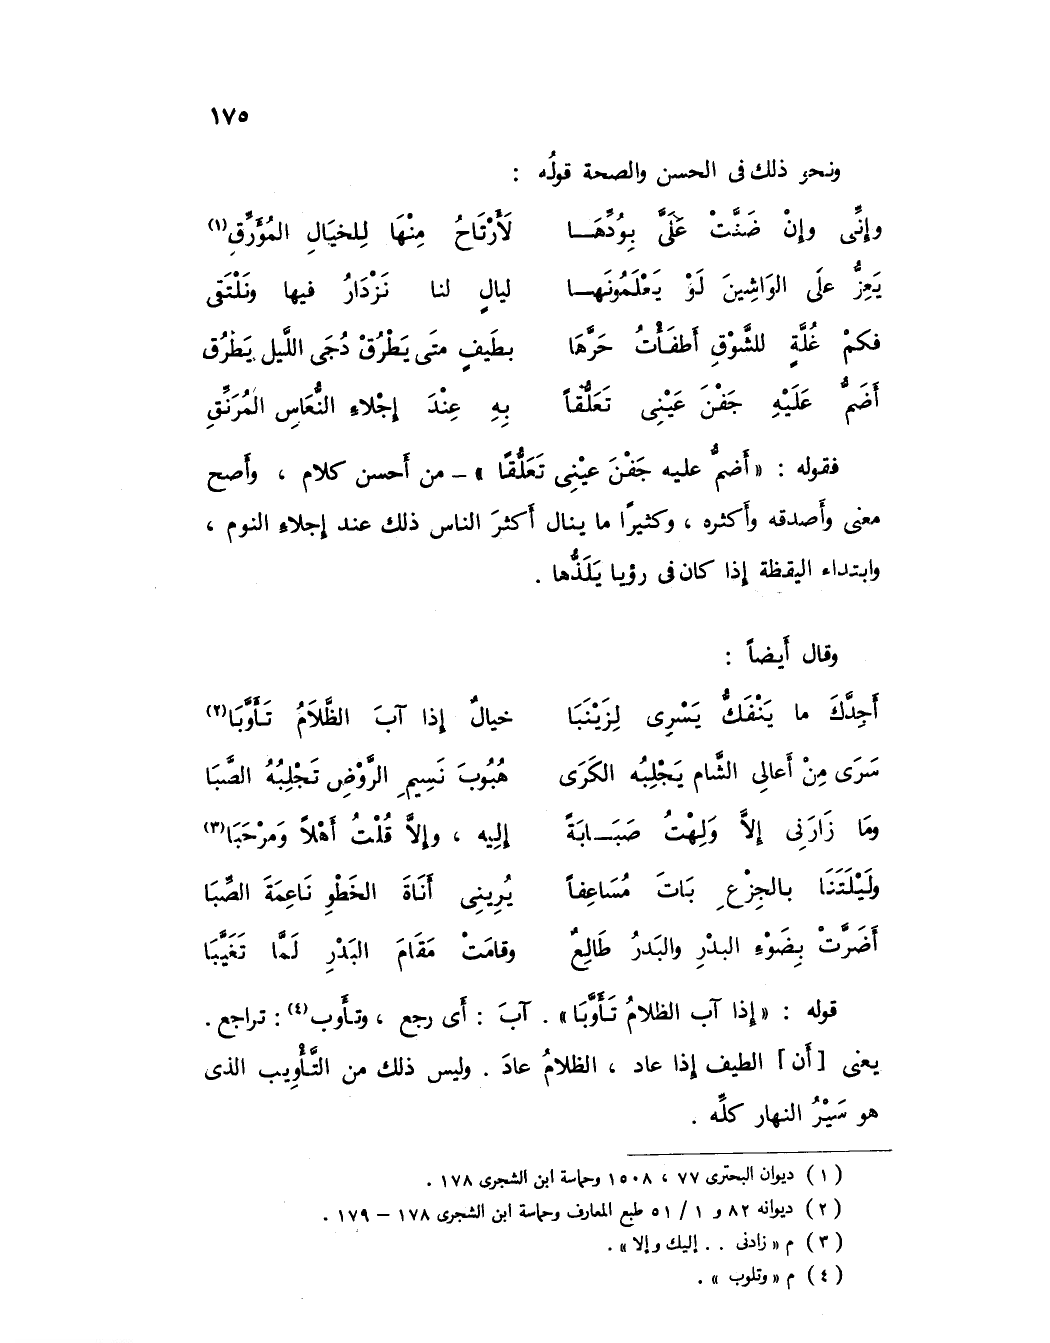 ١٧٥
ونحو ذلك فى الحسن والصحة قولُه :
وإِنِّى وإِنْ ضَنَّتْ عَلَىَّ بِوُدِّهَـــا لَأَرْتَاحُ مِنْهَا لِلخيَالِ المُؤَرِّقِ(١)
يَعِزُّ علَى الوَاشِينَ لَوْ يَعْلَمُونَهــا ليالٍ لنا نَزْدَارُ فيها ونَلْتَقى
فكمْ غُلَّةٍ للشَّوْقِ أَطفَأْتُ حَرَّهَا بطَيفٍ متَى يَطْرُقْ دُجَى اللَّيل يَطْرُق
أَضَمُّ عَلَيْهِ جَفْنَ عَيْنِى تَعَلُّقاً بِهِ عِنْدَ إِجْلاءِ النُّعَاسِ المُرَنِّقِ
فقوله : « أَضمُّ عليه جَفْنَ عيْنِى تَعَلُّقًا » – من أَحسن كلام ، وأَصح
معنى وأَصدقه وأَكثره ، وكثيرًا ما ينال أَكثرَ الناس ذلك عند إِجلاءِ النوم ،
وابتداء اليقظة إِذا كان فى رؤيا يَلَذُّها .
وقال أَيضاً :
أَجِدَّكَ ما يَنْفَكُّ يَسْرِى لِزَيْنَبَا خيالٌ إِذا آبَ الظَّلَامُ تَأَوَّبَا(٢)
سَرَى مِنْ أَعالى الشَّام يَجْلِبُه الكَرَى هُبُوبَ نَسِيمِ الرَّوْضِ تَجْلِبُهُ الصَّبَا
ومَا زَارَنِى إِلاَّ وَلِهْتُ صَبَــابَةً إِلِيه ، وإِلاَّ قُلْتُ أَهْلاً وَمَرْحَبَا(٣)
ولَيْلَتَنَا بالجِزْعِ بَاتَ مُسَاعِفاً يُرِينِى أَنَاةَ الخَطْوِ نَاعِمَةَ الصِّبَا
أَضَرَّتْ بِضَوْءِ البدْرِ والبَدرُ طَالِعٌ وقامَتْ مَقَامَ البَدْرِ لَمَّا تَغَيَّبَا
قوله : « إِذا آب الظلامُ تَأَوَّبَا» . آبَ : أَى رجع ، وتأَوب(٤) : تراجع .
يعنى [ أَن ] الطيف إِذا عاد ، الظلامُ عادَ . وليس ذلك من التَّأْوِيب الذى
هو سَيْرُ النهار كلِّه .
( ١ ) ديوان البحترى ٧٧ ، ١٥٠٨ وحماسة ابن الشجرى ١٧٨ .
( ٢ ) ديوانه ٨٢ و ١ / ٥١ طبع المعارف وحماسة ابن الشجرى ١٧٨ – ١٧٩ .
( ٣ ) م « زادنى . . إليك وإلا » .
( ٤ ) م « وتلوب » .